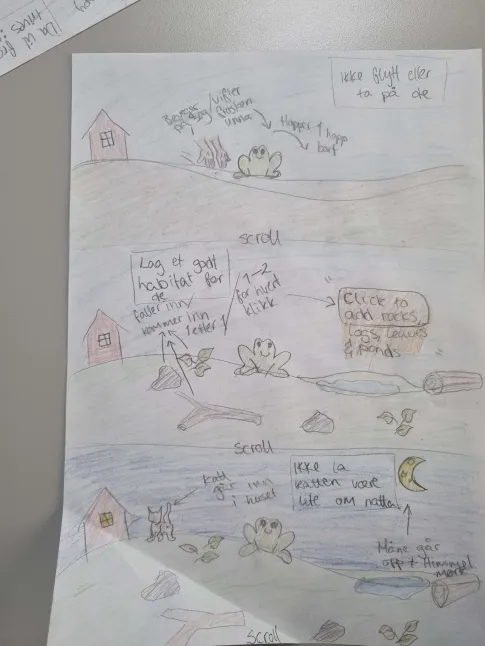 Da vi fra
Ikke flytt eller
ta på de
Beveger
på seg/vifter
frosken
unna
Hopper 1 hopp
bort
scroll
Lag et godt
habitat for
de
faller inn/
kommer inn
1-2
for hvert
klikk
"Click to
add rocks,
logs, leaves
& ponds"
scroll
Katt
går inn
i huset
Ikke la
katten være
ute om natten
Måne går
opp + Himmel
mørk
scroll